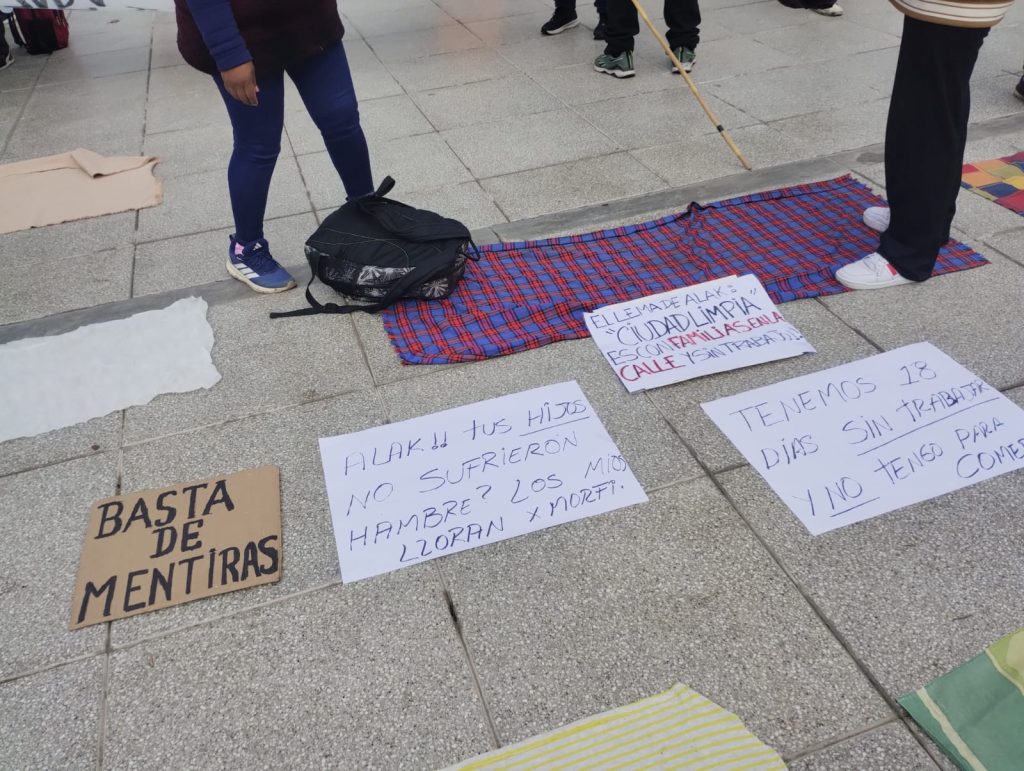 EL LEMA DE ALAK:
"CIUDAD LIMPIA"
ES CON FAMILIAS EN LA
CALLE Y SIN TRABAJO
TENEMOS 18
DÍAS SIN TRABAJAR
Y NO TENGO PARA
COMER
ALAK!! tus HIJOS
NO SUFRIERON
HAMBRE? LOS MIOS
LLORAN X MORFI.
BASTA
DE
MENTIRAS